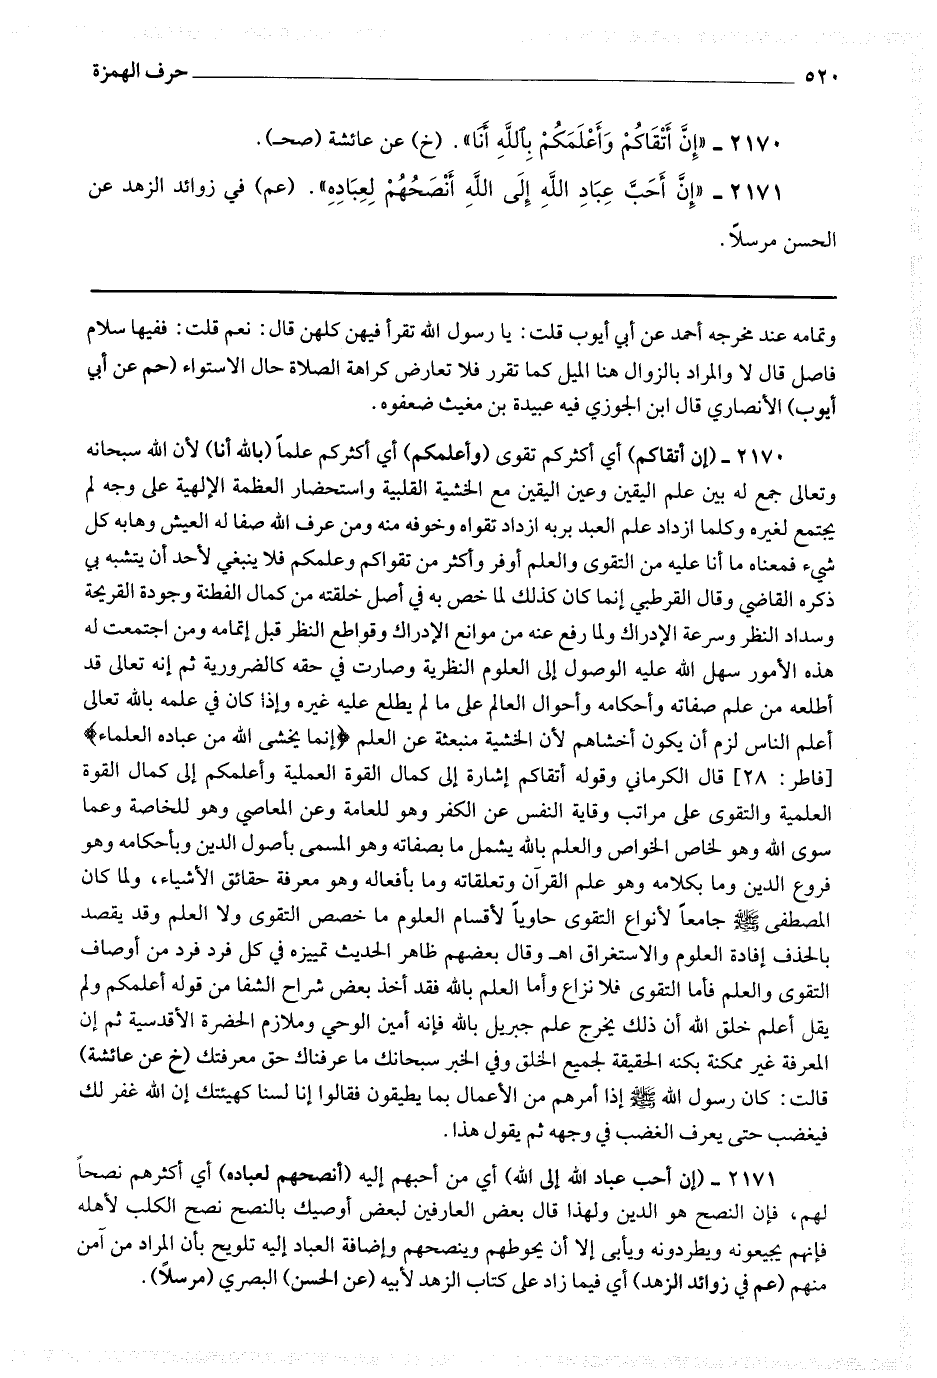 ٥٢٠ حرف الهمزة
٢١٧٠ ـ «إِنَّ أَتْقَاكُمْ وَأَعْلَمَكُمْ بِٱللَّهِ أَنَا». (خ) عن عائشة (صحـ).
٢١٧١ ـ «إِنَّ أَحَبَّ عِبَادِ اللَّهِ إِلَى اللَّهِ أَنْصَحُهُمْ لِعِبَادِهِ». (عم) في زوائد الزهد عن
الحسن مرسلاً.
وتمامه عند مخرجه أحمد عن أبي أيوب قلت: يا رسول الله تقرأ فيهن كلهن قال: نعم قلت: ففيها سلام
فاصل قال لا والمراد بالزوال هنا الميل كما تقرر فلا تعارض كراهة الصلاة حال الاستواء (حم عن أبي
أيوب) الأنصاري قال ابن الجوزي فيه عبيدة بن مغيث ضعفوه.
٢١٧٠ ـ (إن أتقاكم) أي أكثركم تقوى (وأعلمكم) أي أكثركم علماً (بالله أنا) لأن الله سبحانه
وتعالى جمع له بين علم اليقين وعين اليقين مع الخشية القلبية واستحضار العظمة الإلهية على وجه لم
يجتمع لغيره وكلما ازداد علم العبد بربه ازداد تقواه وخوفه منه ومن عرف الله صفا له العيش وهابه كل
شيء فمعناه ما أنا عليه من التقوى والعلم أوفر وأكثر من تقواكم وعلمكم فلا ينبغي لأحد أن يتشبه بي
ذكره القاضي وقال القرطبي إنما كان كذلك لما خص به في أصل خلقته من كمال الفطنة وجودة القريحة
وسداد النظر وسرعة الإدراك ولما رفع عنه من موانع الإدراك وقواطع النظر قبل إتمامه ومن اجتمعت له
هذه الأمور سهل الله عليه الوصول إلى العلوم النظرية وصارت في حقه كالضرورية ثم إنه تعالى قد
أطلعه من علم صفاته وأحكامه وأحوال العالم على ما لم يطلع عليه غيره وإذا كان في علمه بالله تعالى
أعلم الناس لزم أن يكون أخشاهم لأن الخشية منبعثة عن العلم ﴿إنما يخشى الله من عباده العلماء﴾
[فاطر: ٢٨] قال الكرماني وقوله أتقاكم إشارة إلى كمال القوة العملية وأعلمكم إلى كمال القوة
العلمية والتقوى على مراتب وقاية النفس عن الكفر وهو للعامة وعن المعاصي وهو للخاصة وعما
سوى الله وهو لخاص الخواص والعلم بالله يشمل ما بصفاته وهو المسمى بأصول الدين وبأحكامه وهو
فروع الدين وما بكلامه وهو علم القرآن وتعلقاته وما بأفعاله وهو معرفة حقائق الأشياء، ولما كان
المصطفى ﷺ جامعاً لأنواع التقوى حاوياً لأقسام العلوم ما خصص التقوى ولا العلم وقد يقصد
بالحذف إفادة العلوم والاستغراق اهـ وقال بعضهم ظاهر الحديث تمييزه في كل فرد فرد من أوصاف
التقوى والعلم فأما التقوى فلا نزاع وأما العلم بالله فقد أخذ بعض شراح الشفا من قوله أعلمكم ولم
يقل أعلم خلق الله أن ذلك يخرج علم جبريل بالله فإنه أمين الوحي وملازم الحضرة الأقدسية ثم إن
المعرفة غير ممكنة بكنه الحقيقة لجميع الخلق وفي الخبر سبحانك ما عرفناك حق معرفتك (خ عن عائشة)
قالت: كان رسول الله ﷺ إذا أمرهم من الأعمال بما يطيقون فقالوا إنا لسنا كهيئتك إن الله غفر لك
فيغضب حتى يعرف الغضب في وجهه ثم يقول هذا.
٢١٧١ ـ (إن أحب عباد الله إلى الله) أي من أحبهم إليه (أنصحهم لعباده) أي أكثرهم نصحاً
لهم، فإن النصح هو الدين ولهذا قال بعض العارفين لبعض أوصيك بالنصح نصح الكلب لأهله
فإنهم يجيعونه ويطردونه ويأبى إلا أن يحوطهم وينصحهم وإضافة العباد إليه تلويح بأن المراد من آمن
منهم (عم في زوائد الزهد) أي فيما زاد على كتاب الزهد لأبيه (عن الحسن) البصري (مرسلاً).